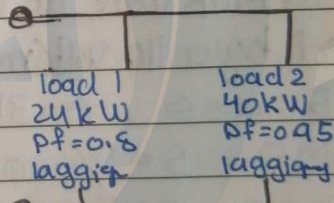 load 1
24kW
Pf=0.8
laggig
load 2
40kW
Pf=095
laggigng